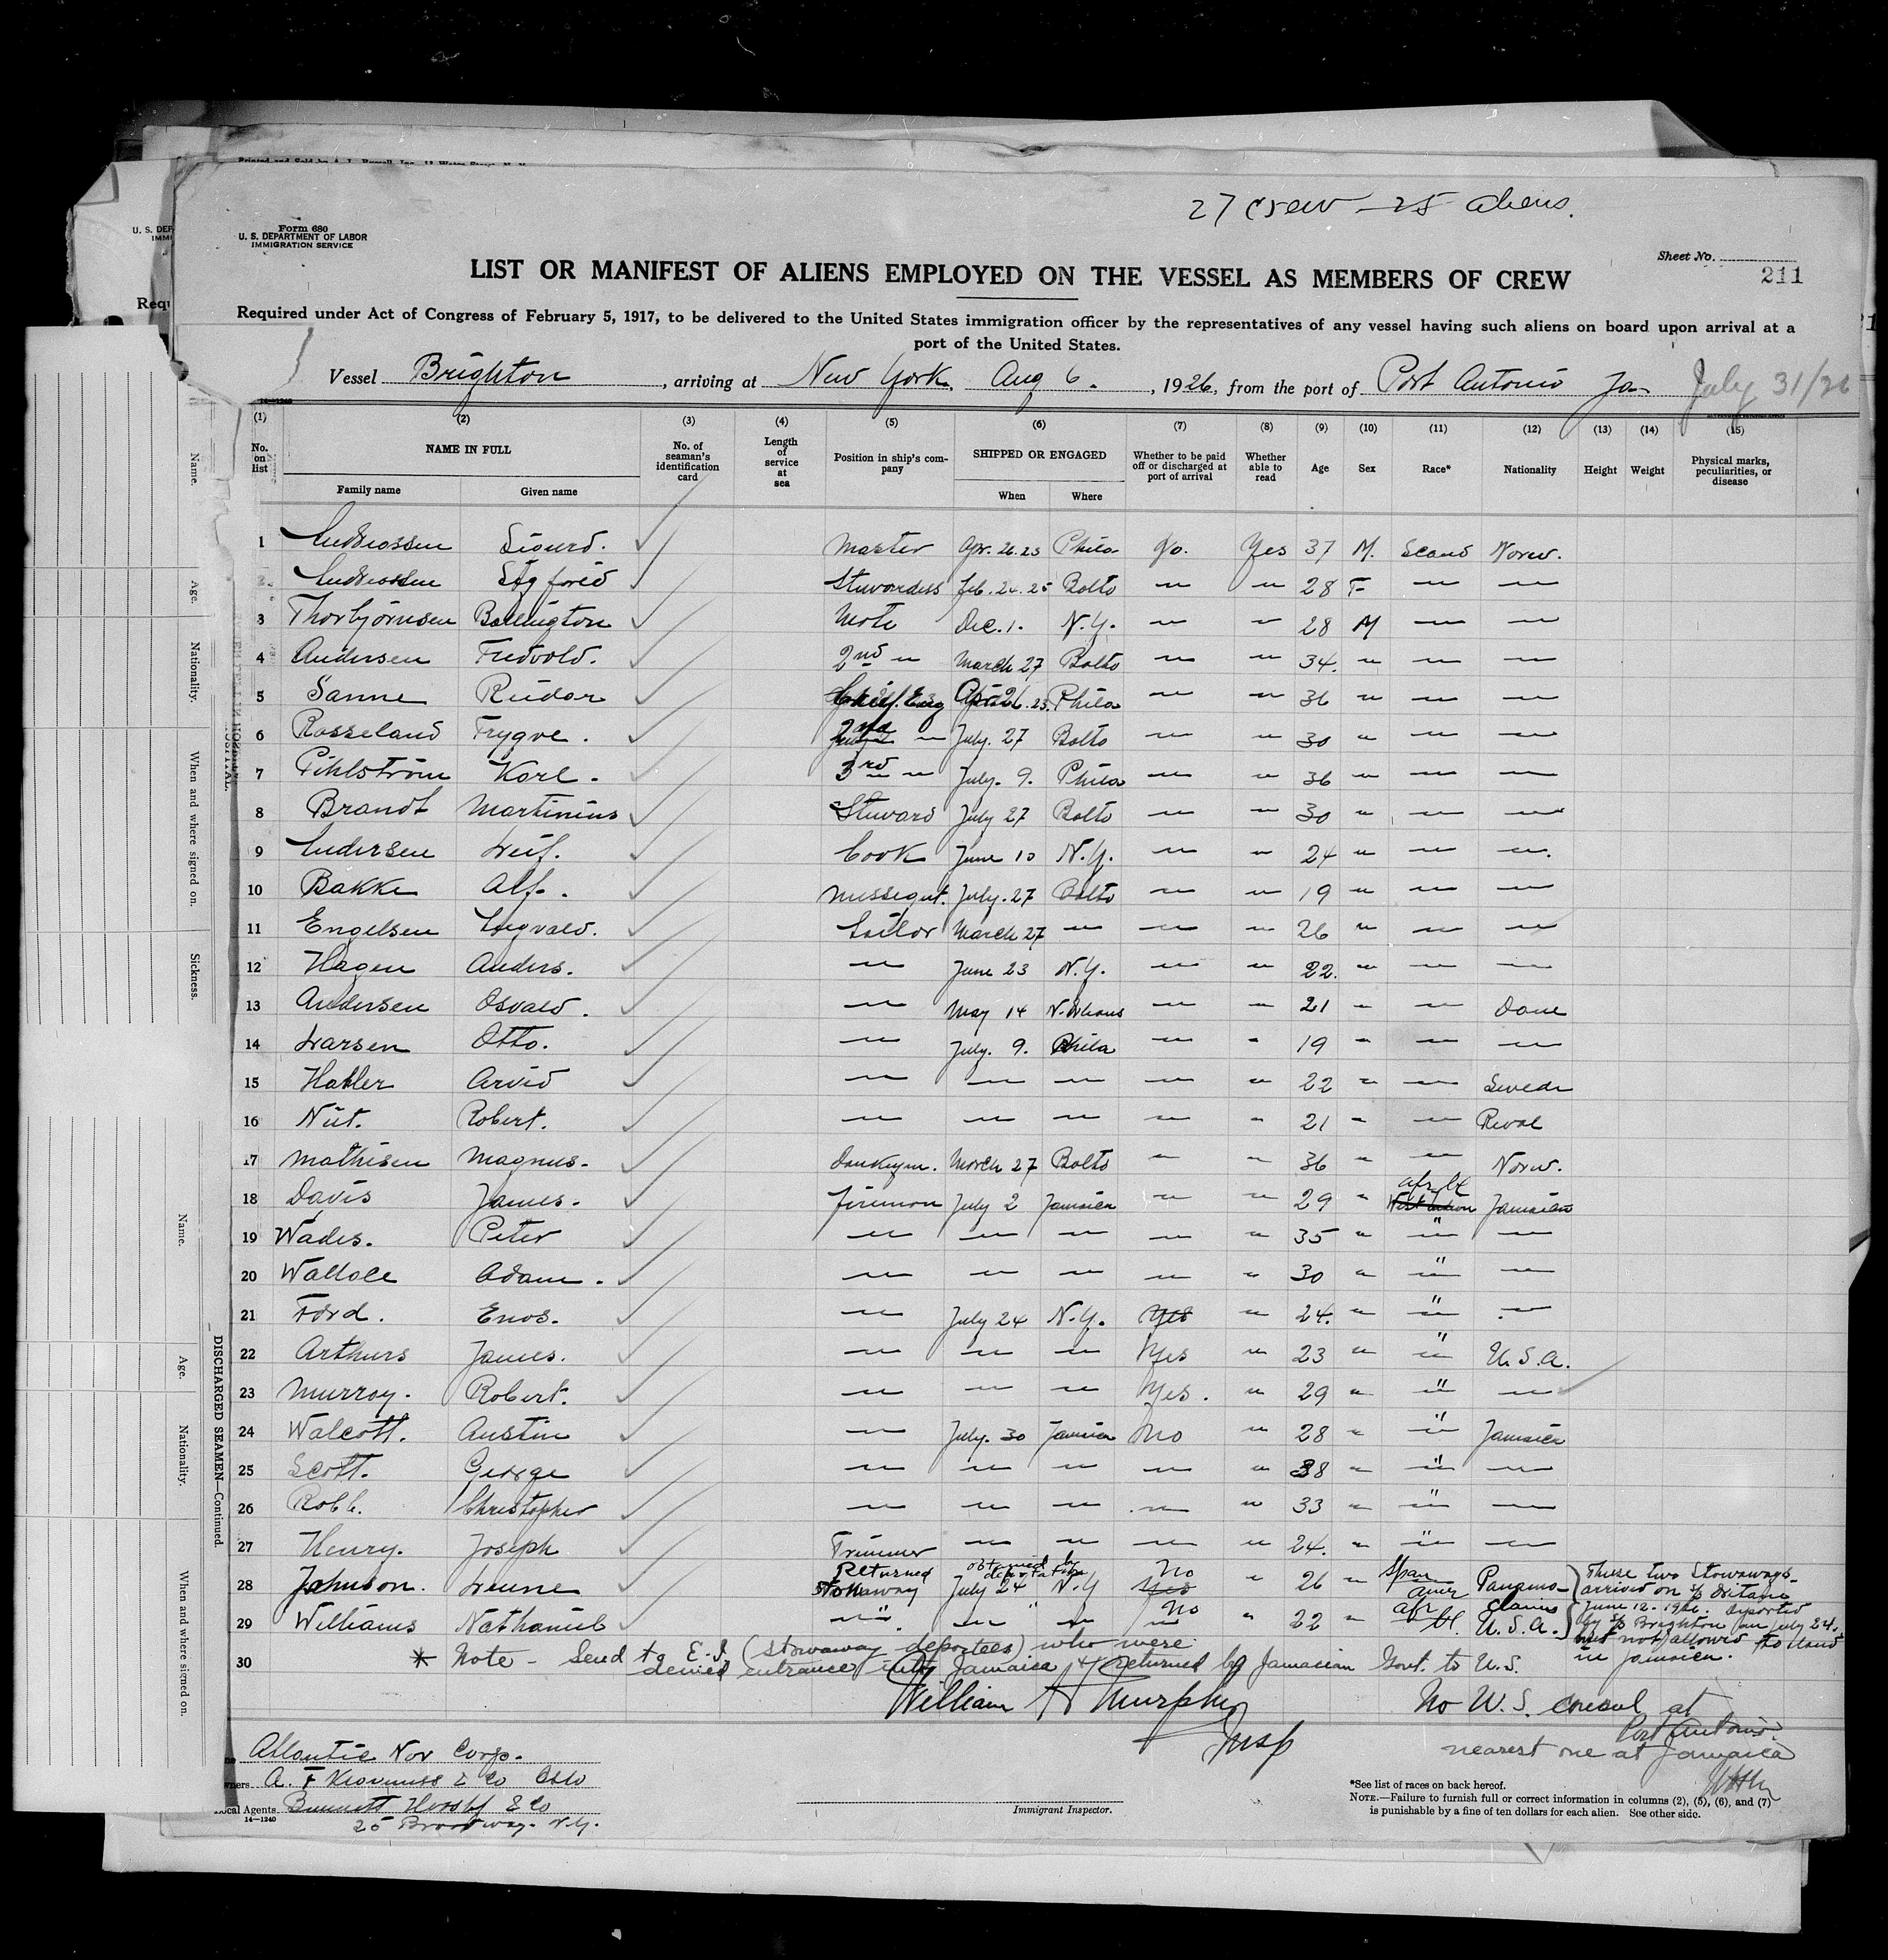 27 crew - 25 aliens.
Form 680
U. S. DEPARTMENT OF LABOR
IMMIGRATION SERVICE
Sheet No.
211
LIST OR MANIFEST OF ALIENS EMPLOYED ON THE VESSEL AS MEMBERS OF CREW
Required under Act of Congress of February 5, 1917, to be delivered to the United States immigration officer by the representatives of any vessel having such aliens on board upon arrival at a
port of the United States.
Vessel Brighton, arriving at New York, Aug 6., 1926, from the port of Port Antonio Ja. July 31/26
14—1240
(1) (2) (3) (4) (5) (6) (7) (8) (9) (10) (11) (12) (13) (14) (15)
No. on list NAME IN FULL No. of seaman's identification card Length of service at sea Position in ship's company SHIPPED OR ENGAGED Whether to be paid off or discharged at port of arrival Whether able to read Age Sex Race* Nationality Height Weight Physical marks, peculiarities, or disease
Family name Given name When Where
1 Sigurd. Master Apr. 26.23 Phila No. Yes 37 M. Scand Norw.
2 Stewardess Feb. 24. 25 Balto — " 28 F — —
3 Thorbjørnsen Mate Dec. 1. N.Y. — " 28 M — —
4 Andersen 2nd " March 27 Balto — " 34. " — —
5 Sanne Reidar Chief. Eng April 26.23. Phila — " 36 " — —
6 Rosseland Trygve. 2nd " July. 27 Balto — " 30 " — —
7 Pihlstrøm Karl. 3rd " July. 9. Phila — " 36 " — —
8 Brandt Martinius Steward July 27 Balto — " 30 " — —
9 Andersen Leif. Cook June 10 N.Y. — " 24 " — —.
10 Bakke Alf. Messegut. July. 27 Balto — " 19 " — —
11 Engelsen Sailor March 27 — — " 26 " — —
12 Hagen Anders. — June 23 N.Y. — " 22. " — —
13 Andersen Osvald. — May 14 N.Orleans — " 21 " — Dane
14 Larsen Otto. — July. 9. Phila — " 19 " — —
15 Arvid — — — — " 22 " — Swede
16 Robert. — — — — " 21 " — Reval
17 Mathisen Magnus. Donkeym. March 27 Balto — " 36 " — Norw.
18 Davis James. Fireman July 2 Jamaica — " 29 " West Indian afr blk Jamaican
19 Wades. Peter — — — — " 35 " " —
20 Wallace Adam. — — — — " 30 " " —
21 Ford. Enos. — July 24 N.Y. Yes " 24. " " —
22 Arthurs James. — — — Yes " 23 " " U.S.A.
23 Murray. Robert. — — — Yes. " 29 " " —
24 Walcott. Austin — July. 30 Jamaica No " 28 " " Jamaica
25 Scott. George — — — — " 38 " " —
26 Robb. Christopher — — — — " 33 " " —
27 Henry. Joseph Trimmer — — — — " 24. " " —
28 Johnson. Returned Stowaway July 24 N.Y Yes No " 26 " Span amer Panama
29 Williams Nathaniel " " " No " 22 " afr bl. claims U.S.A.
These two Stowaways
arrived on s/s
June 12. 1926. deported
by s/s Brighton on July 24.
but not allowed to land
in Jamaica.
30
* Note - Send to E.I. (stowaway deportees) who were
denied entrance into Jamaica & returned by Jamaican Govt. to U.S.
William H Murphy
Insp
No U.S. consul at
Port Antonio.
nearest one at Jamaica
Atlantic Nav Corp.
Owners A. F Klaveness & Co Oslo
Local Agents Bennett & Co
25 Broadway. N.Y.
14—1240
Immigrant Inspector.
*See list of races on back hereof.
NOTE.—Failure to furnish full or correct information in columns (2), (5), (6), and (7)
is punishable by a fine of ten dollars for each alien. See other side.
Name.
Age.
Nationality.
When and where signed on.
Sickness.
Name.
Age.
Nationality.
When and where signed on.
DISCHARGED SEAMEN—Continued.